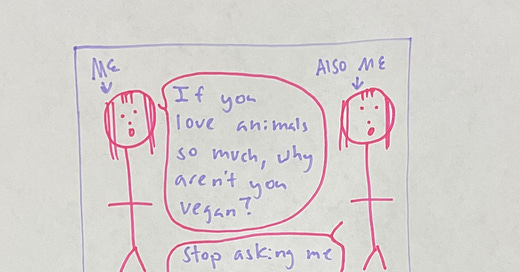 ME
ALSO ME
If you
love animals
so much, why
aren't you
vegan?
Stop asking me